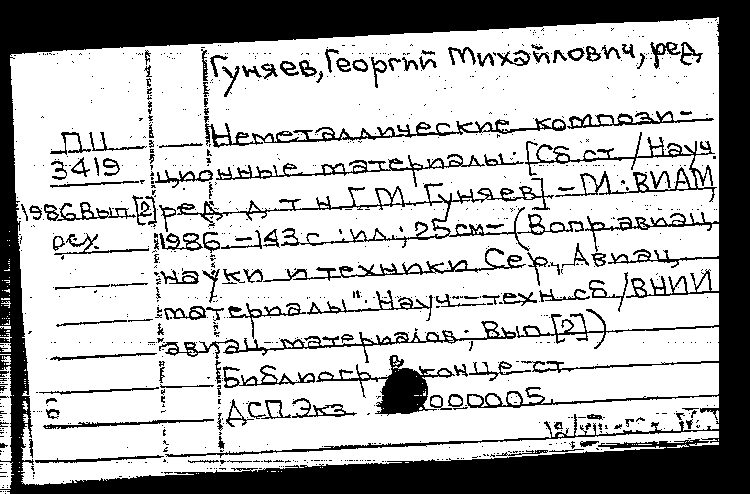 Гуняев, Георгий Михайлович, ред.
П11
3419
1986 Вып. [2]
рсх
Неметаллические компози-
ционные материалы: [Сб. ст. / Науч.
ред. д. т. н. Г. М. Гуняев] - М.: ВИАМ,
1986. - 143 с.: ил.; 25 см - (Вопр. авиац.
науки и техники. Сер. „Авиац.
материалы": Науч.-техн. сб. / ВНИИ
авиац. материалов; Вып. [2])
Библиогр. в конце ст.
ДСП. Экз. 000005.
б